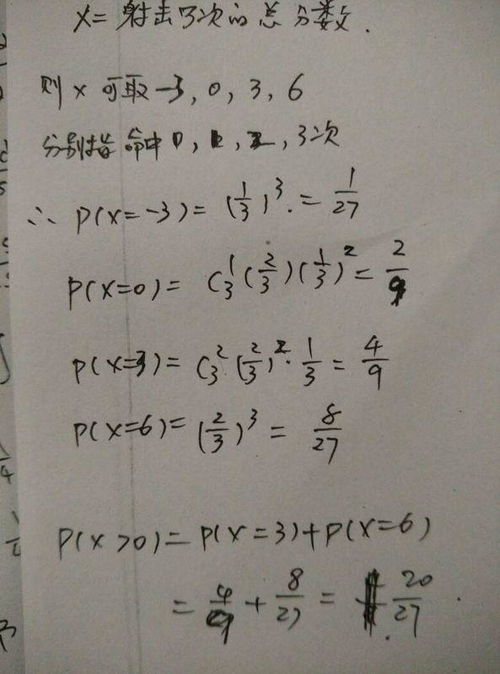 X=射击3次的总分数.
则 x 可取 -3, 0, 3, 6
分别指命中 0, 1, 2, 3次
∴ P(X=-3) = (1/3)^3 = 1/27
P(X=0) = C_3^1 (2/3)(1/3)^2 = 2/9
P(X=3) = C_3^2 (2/3)^2 · 1/3 = 4/9
P(X=6) = (2/3)^3 = 8/27
P(X>0) = P(X=3)+P(X=6)
= 4/9 + 8/27 = 20/27.